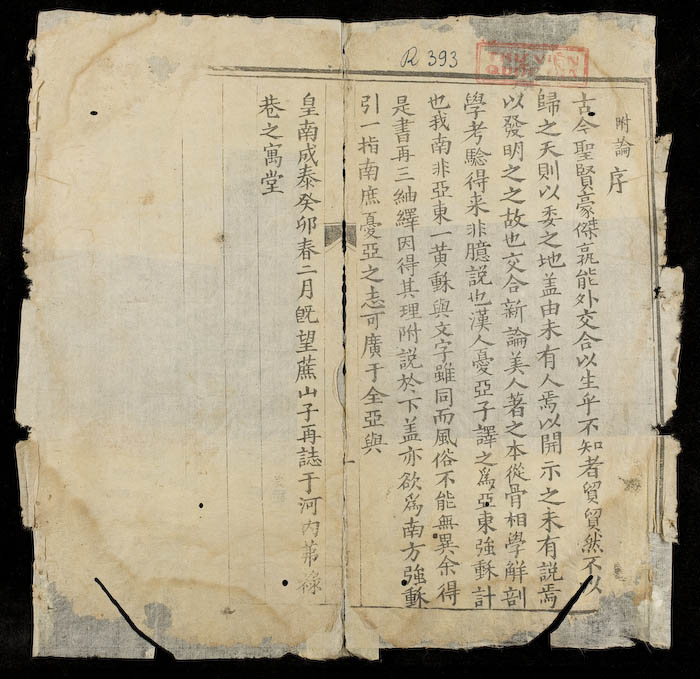 R 393
附論 序
古今聖賢豪傑孰能外交合以生乎不知者貿貿然不以
歸之天則以委之地盖由未有人焉以開示之未有説焉
以發明之之故也交合新論美人著之本從骨相學解剖
學考騐得来非臆説也漢人憂亞子譯之爲亞東強稣計
也我南非亞東一黄稣與文字雖同而風俗不能無異余得
是書再三紬繹因得其理附説於下盖亦欲爲南方強稣
引一指南庶憂亞之志可廣于全亞與
皇南成泰癸卯春二月旣望蔗山子再誌于河内第禄
巷之寓堂